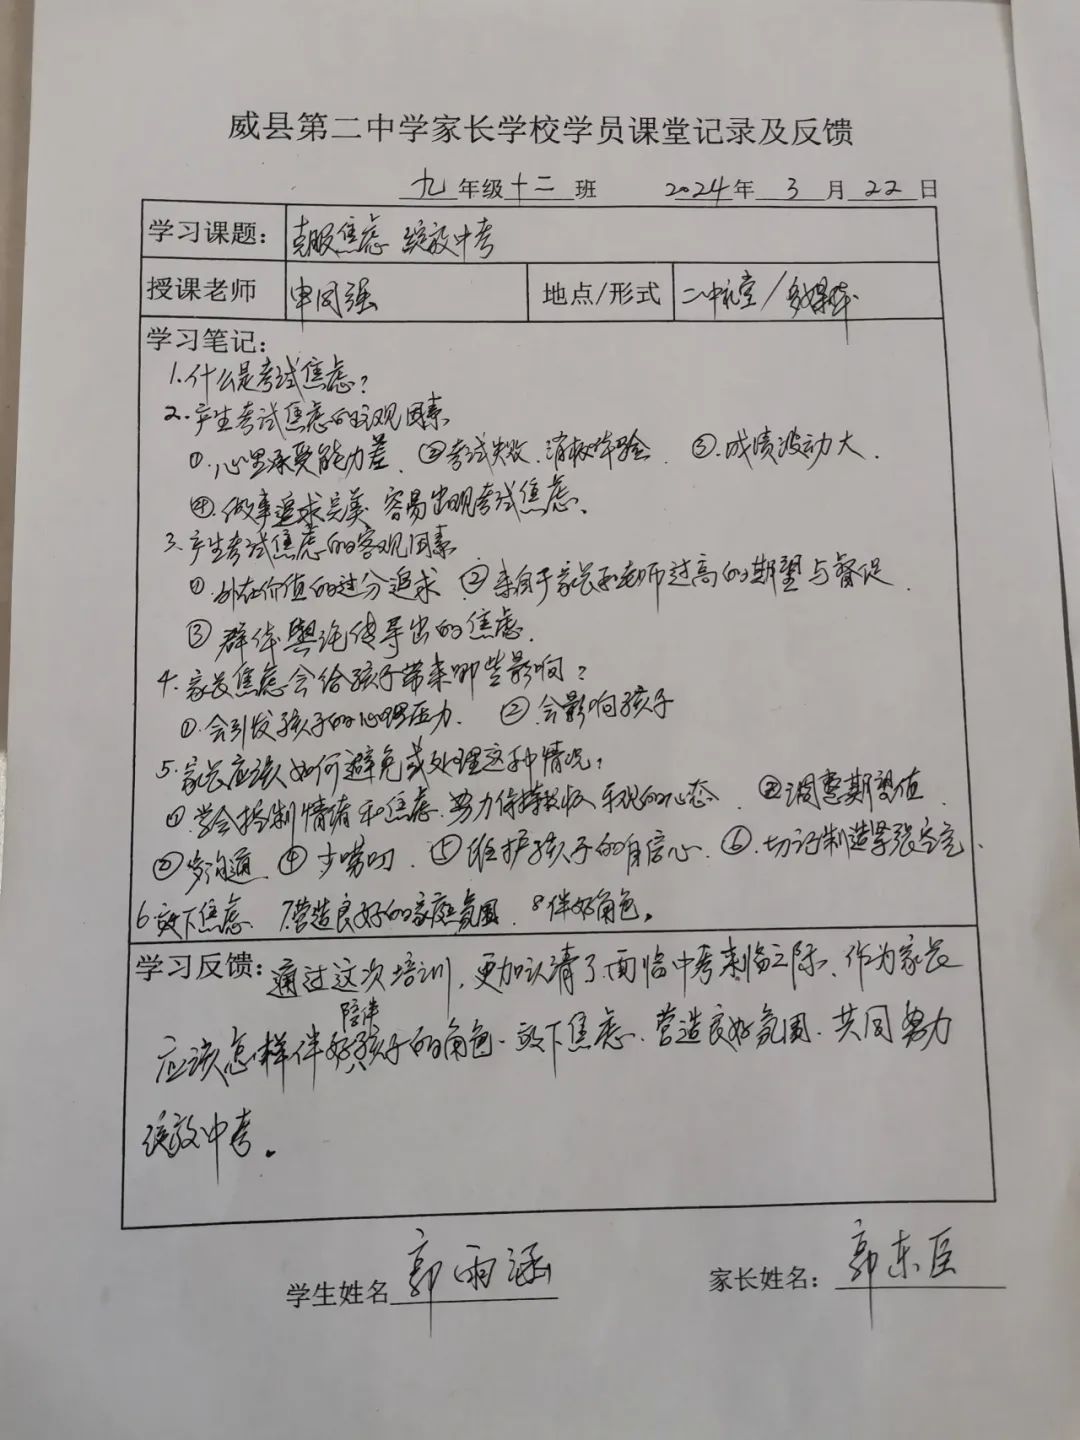 威县第二中学家长学校学员课堂记录及反馈
九年级十二班 2024年3月22日
学习课题: 克服焦虑 绽放中考
授课老师 申同强 地点/形式 二中礼堂/多媒体
学习笔记:
1.什么是考试焦虑?
2.产生考试焦虑的主观因素
①.心里承受能力差. ②考试失败.消极体验 ③.成绩波动大.
④.做事追求完美、容易出现考试焦虑、
3.产生考试焦虑的客观因素
①.外在价值的过分追求 ②来自于家长和老师过高的期望与督促.
③群体舆论传导出的焦虑.
4.家长焦虑会给孩子带来哪些影响?
①.会引发孩子的心理压力. ②.会影响孩子
5.家长应该如何避免或处理这种情况?
①.学会控制情绪和焦虑.努力保持积极 乐观的心态. ②调整期望值.
③多沟通. ④少唠叨. ⑤维护孩子的自信心. ⑥.切记制造紧张空气.
6.放下焦虑. 7.营造良好的家庭氛围. 8.伴好角色。
学习反馈: 通过这次培训,更加认清了.面临中考来临之际、作为家长
陪伴
应该怎样伴好孩子的角色.放下焦虑.营造良好氛围.共同努力
绽放中考。
学生姓名 郭雨涵 家长姓名: 郭东臣